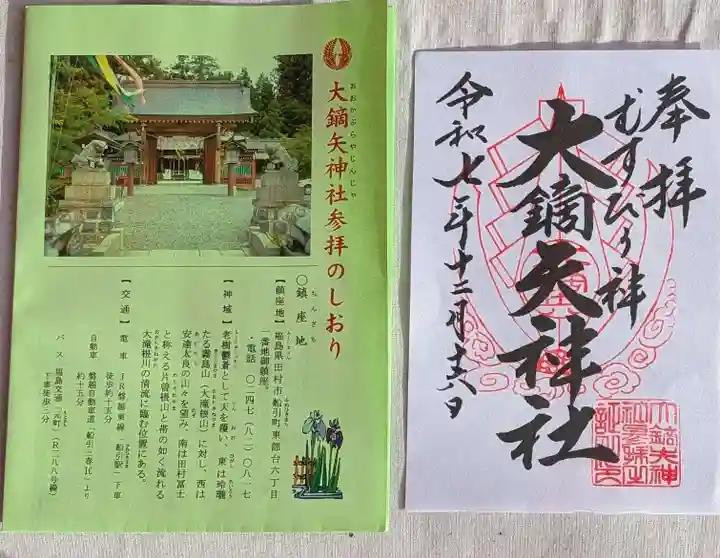 大鏑矢神社参拝のしおり
おおかぶらやじんじゃ
○鎮座地
ちんざち
【鎮座地】福島県田村市船引町東部台六丁目
一番地御鎮座。
電話 〇二四七(八二)〇八一七
【神域】老樹鬱蒼として天を覆い、東は玲瓏
たる霧島山(大滝根山)に対し、西は
安達太良の山々を望み、南は田村富士
と称える片曽根山と帯の如く流れる
大滝根川の清流に臨む位置にある。
【交通】電車 JR磐越東線「船引駅」下車
徒歩約十五分
自動車 磐越自動車道「船引三春IC」より
約十五分
バス 福島交通「元町」(R二八八号線)
下車徒歩三分
奉拝
むすひの神
大鏑矢神社
令和七年十二月十六日
大鏑矢神
社参拝之
証